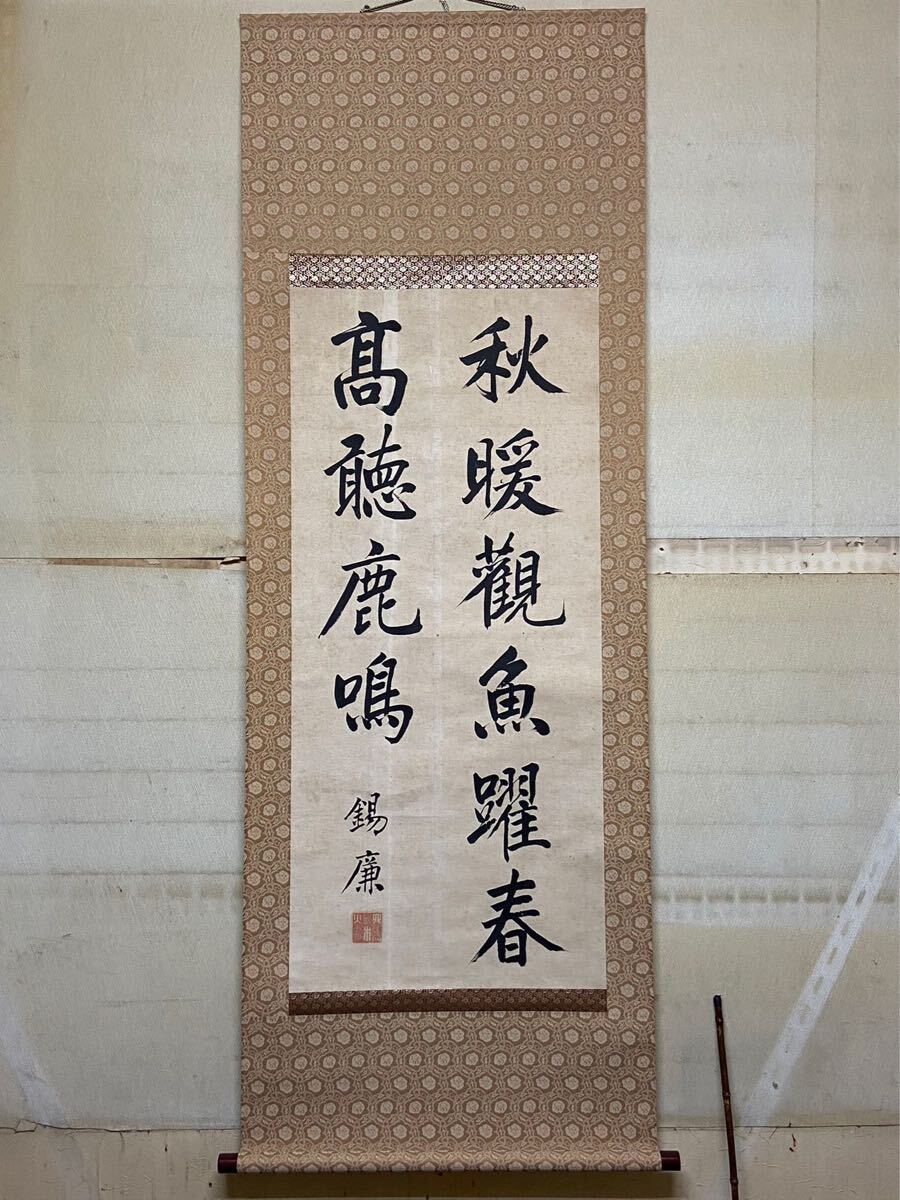 秋暖觀魚躍春
髙聽鹿鳴
錫廉